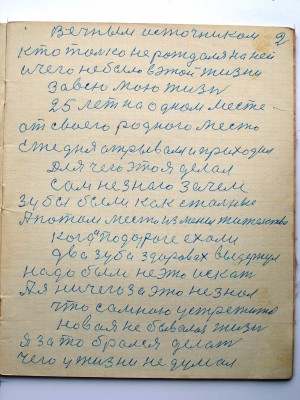 Вечным источником 2
кто только не рождался на ней
и чего небыло в этой жизни
За всю мою жизн
25 лет на одном месте
от своего родного место
отрывал и приходил
Для чего это я делал
Сам не знаю зачем
Зубы были как стальные
А потом место изменил жительство
Когда по дороге ехали
два зуба здоровых выдернул
надо было не это искат
А я ничего за это не знал
что самною устретито
новая не бывалая жизн
Я за то брался делат
чего у жизни не думал